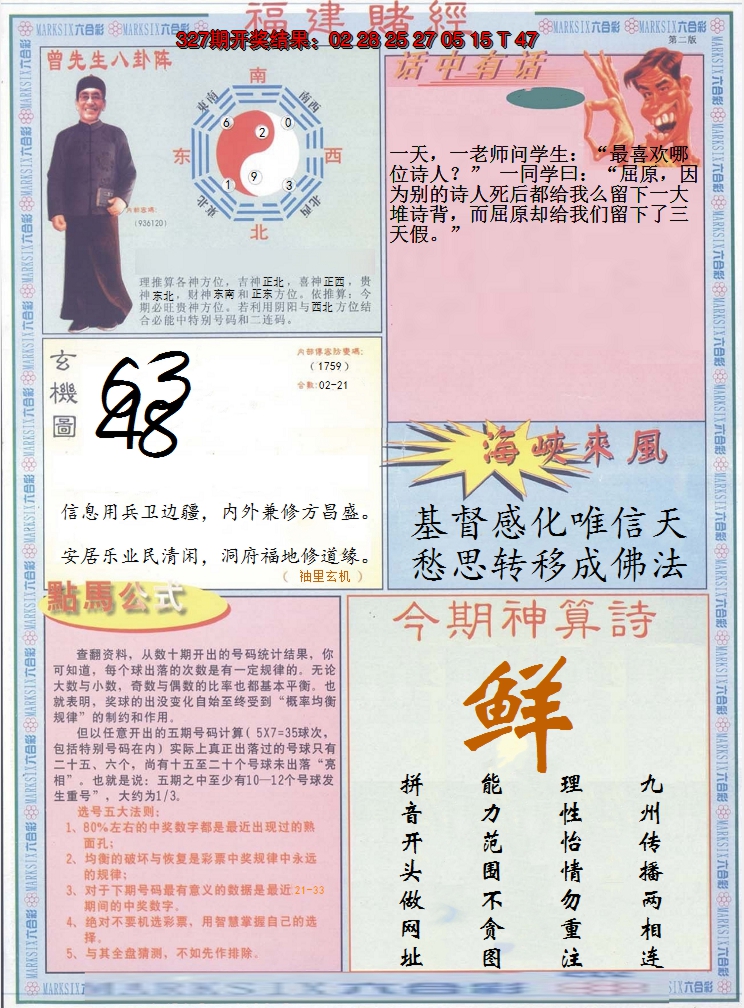 福建賭經
327期开奖结果：02 28 25 27 05 15 T 47
第二版
MARKSIX六合彩
曾先生八卦阵
南
东南
南西
6
0
2
东
西
9
1
3
東北
北西
北
内部密碼：
（936120）
理推算各神方位，吉神正北，喜神正西，贵
神东北，财神东南和正东方位。依推算：今
期必旺贵神方位。若利用阴阳与西北方位结
合必能中特别号码和二连码。
话中有话
一天，一老师问学生：“最喜欢哪
位诗人？” 一同学曰：“屈原，因
为别的诗人死后都给我么留下一大
堆诗背，而屈原却给我们留下了三
天假。”
玄機圖
63
48
内部傳容防壹碼：
（1759）
合数：02-21
信息用兵卫边疆，内外兼修方昌盛。
安居乐业民清闲，洞府福地修道缘。
（ 袖里玄机 ）
海峡來風
基督感化唯信天
愁思转移成佛法
點馬公式
查翻资料，从数十期开出的号码统计结果，你
可知道，每个球出落的次数是有一定规律的。无论
大数与小数，奇数与偶数的比率也都基本平衡。也
就表明，奖球的出没变化自始至终受到“概率均衡
规律”的制约和作用。
但以任意开出的五期号码计算（5X7=35球次，
包括特别号码在内）实际上真正出落过的号球只有
二十五、六个，尚有十五至二十个号球未出落“亮
相”。也就是说：五期之中至少有10—12个号球发
生重号”，大约为1/3。
选号五大法则：
1、80%左右的中奖数字都是最近出现过的熟
面孔；
2、均衡的破坏与恢复是彩票中奖规律中永远
的规律；
3、对于下期号码最有意义的数据是最近21-33
期间的中奖数字。
4、绝对不要机选彩票，用智慧掌握自己的选
择。
5、与其全盘猜测，不如先作排除。
今期神算詩
鲜
九州传播两相连
理性怡情勿重注
能力范围不贪图
拼音开头做网址